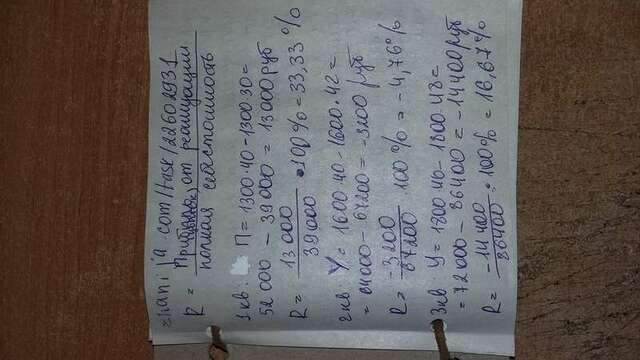 znanija com/task/22602931
R = Прибыль от реализации
полная себестоимость
1 кв: П = 1300·40 - 1300·30 =
52 000 - 39 000 = 13 000 руб
R = 13 000 / 39000 · 100% = 33,33 %
2кв: У = 1600·40 - 1600·42 =
= 64000 - 67200 = -3200 руб
R = -3200 / 67200 100% = -4,76%
3кв У = 1800·40 - 1800·48 =
= 72000 - 86400 = -14400 руб
R = -14 400 / 86400 · 100% = 16,67%